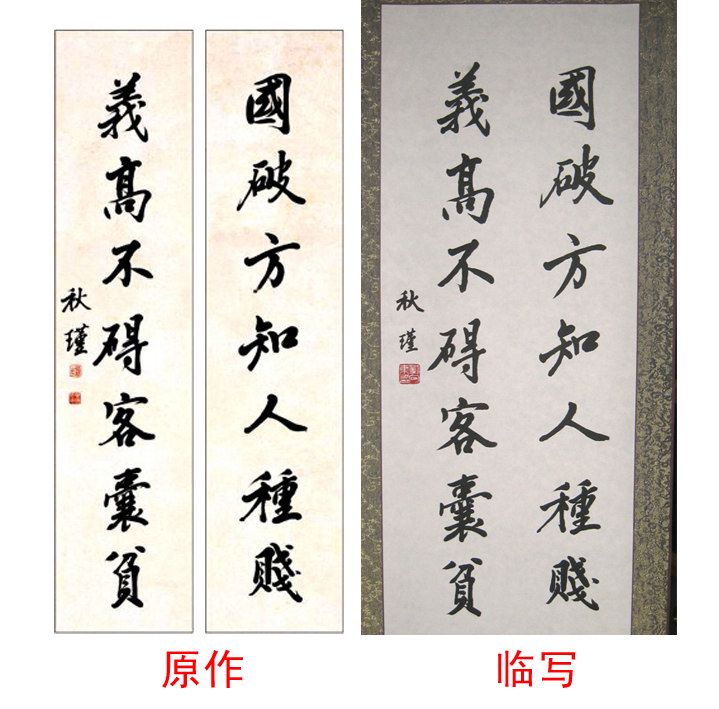 國破方知人種賤
義高不碍客囊貧
秋瑾
原作
國破方知人種賤
義高不碍客囊貧
秋瑾
临写